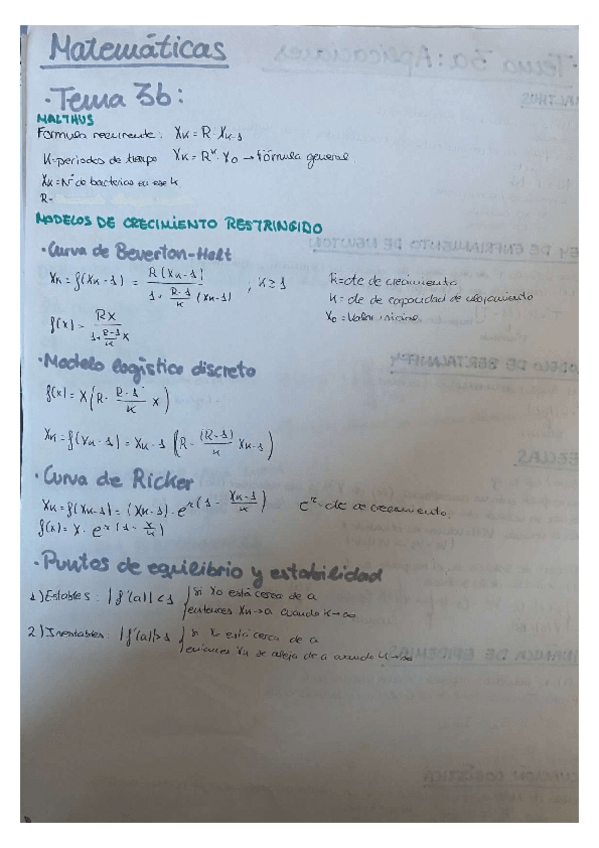 Matemáticas
· Tema 3b:
MALTHUS
Formula recurrente: Xk = R · Xk-1
K-periodos de tiempo Xk = R^k · X0 → fórmula general
Xk = Nº de bacterias en ese k
R-
MODELOS DE CRECIMIENTO RESTRINGIDO
· Curva de Beverton-Holt
Xk = f(Xk-1) = R(Xk-1) / (1 + (R-1)/K (Xk-1)) , K ≥ 1
R = cte de crecimiento
K = cte de capacidad de alojamiento
X0 = Valor inicial
f(x) = Rx / (1 + (R-1)/K x)
· Modelo logístico discreto
f(x) = x (R - (R-1)/K x)
Xk = f(Xk-1) = Xk-1 (R - (R-1)/K Xk-1)
· Curva de Ricker
Xk = f(Xk-1) = (Xk-1) · e^r(1 - Xk-1/K) e^r - cte de crecimiento
f(x) = x · e^r(1 - x/K)
· Puntos de equilibrio y estabilidad
1) Estables: |f'(a)| < 1 { si X0 está cerca de a
entonces Xk → a cuando K → ∞
2) Inestables: |f'(a)| > 1 { si X0 está cerca de a
entonces Xk se aleja de a cuando K → ∞